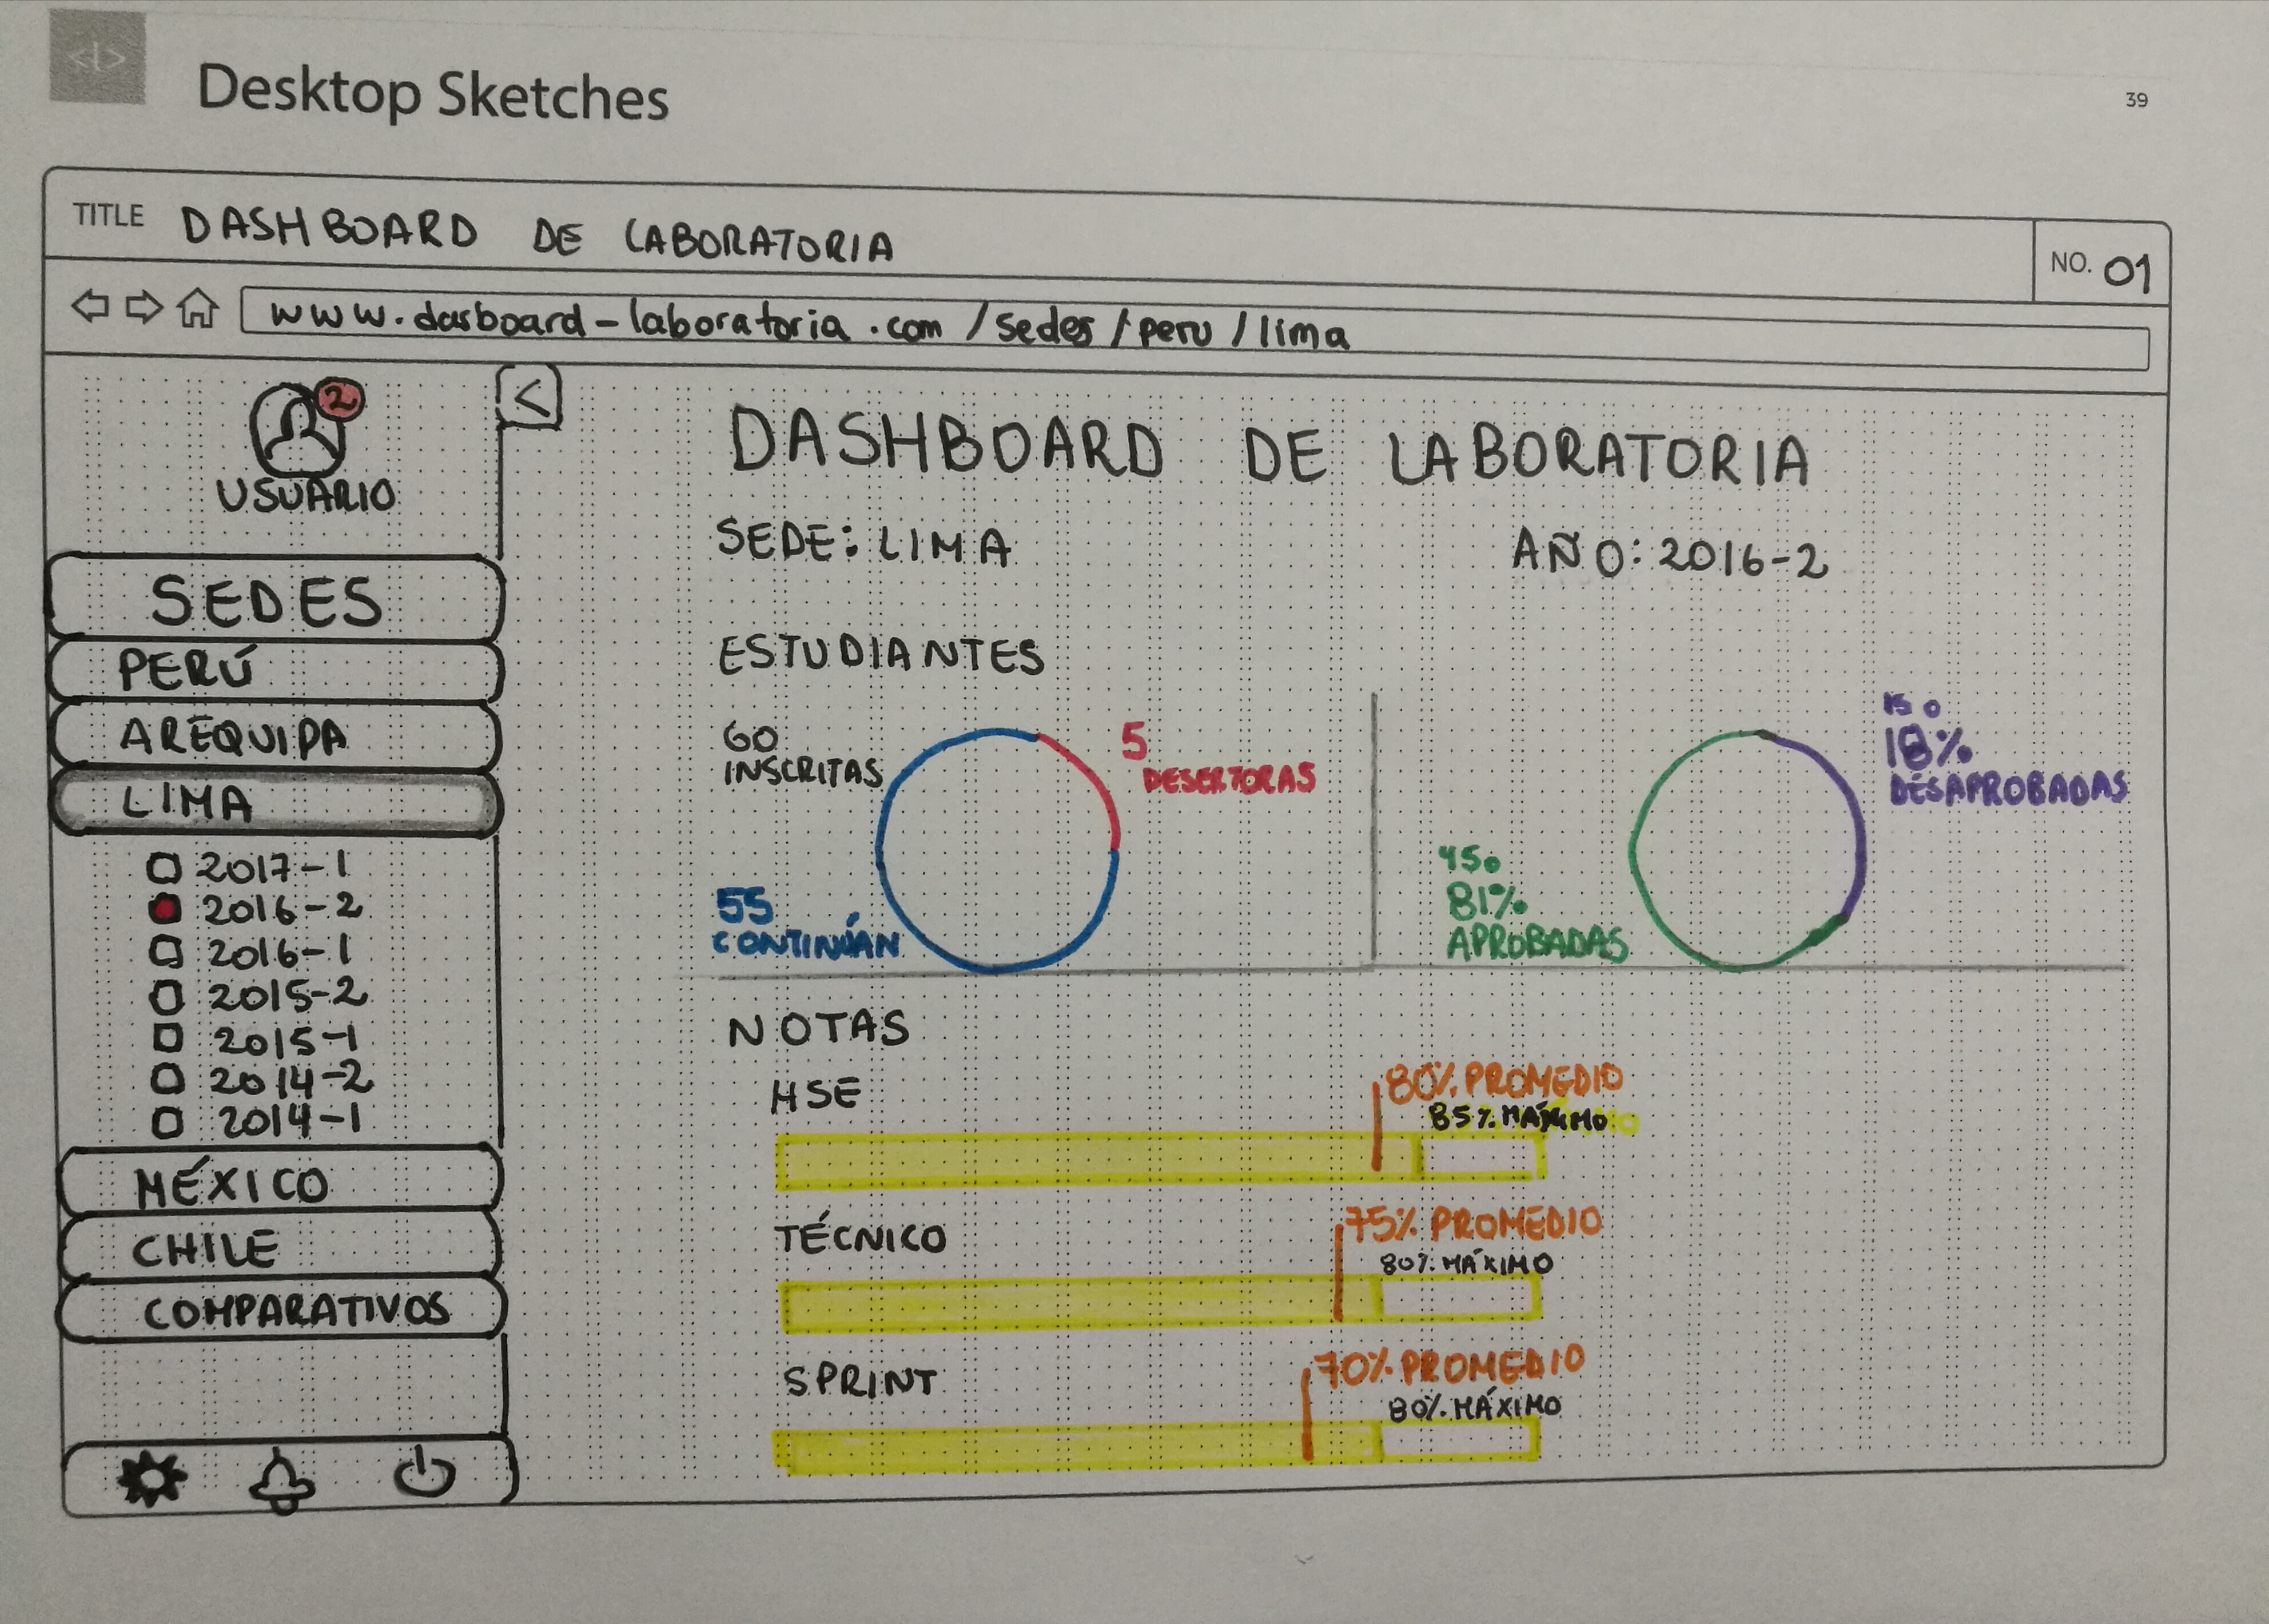 <|>
Desktop Sketches
39
TITLE DASHBOARD DE LABORATORIA
NO. 01
www.dasboard-laboratoria.com/sedes/peru/lima
2
USUARIO
<
SEDES
PERÚ
AREQUIPA
LIMA
2017-1
2016-2
2016-1
2015-2
2015-1
2014-2
2014-1
MÉXICO
CHILE
COMPARATIVOS
DASHBOARD DE LABORATORIA
SEDE: LIMA
AÑO: 2016-2
ESTUDIANTES
60
INSCRITAS
5
DESERTORAS
55
CONTINÚAN
18%
DESAPROBADAS
81%
APROBADAS
NOTAS
HSE
80% PROMEDIO
85% MÁXIMO
TÉCNICO
75% PROMEDIO
80% MÁXIMO
SPRINT
70% PROMEDIO
80% MÁXIMO